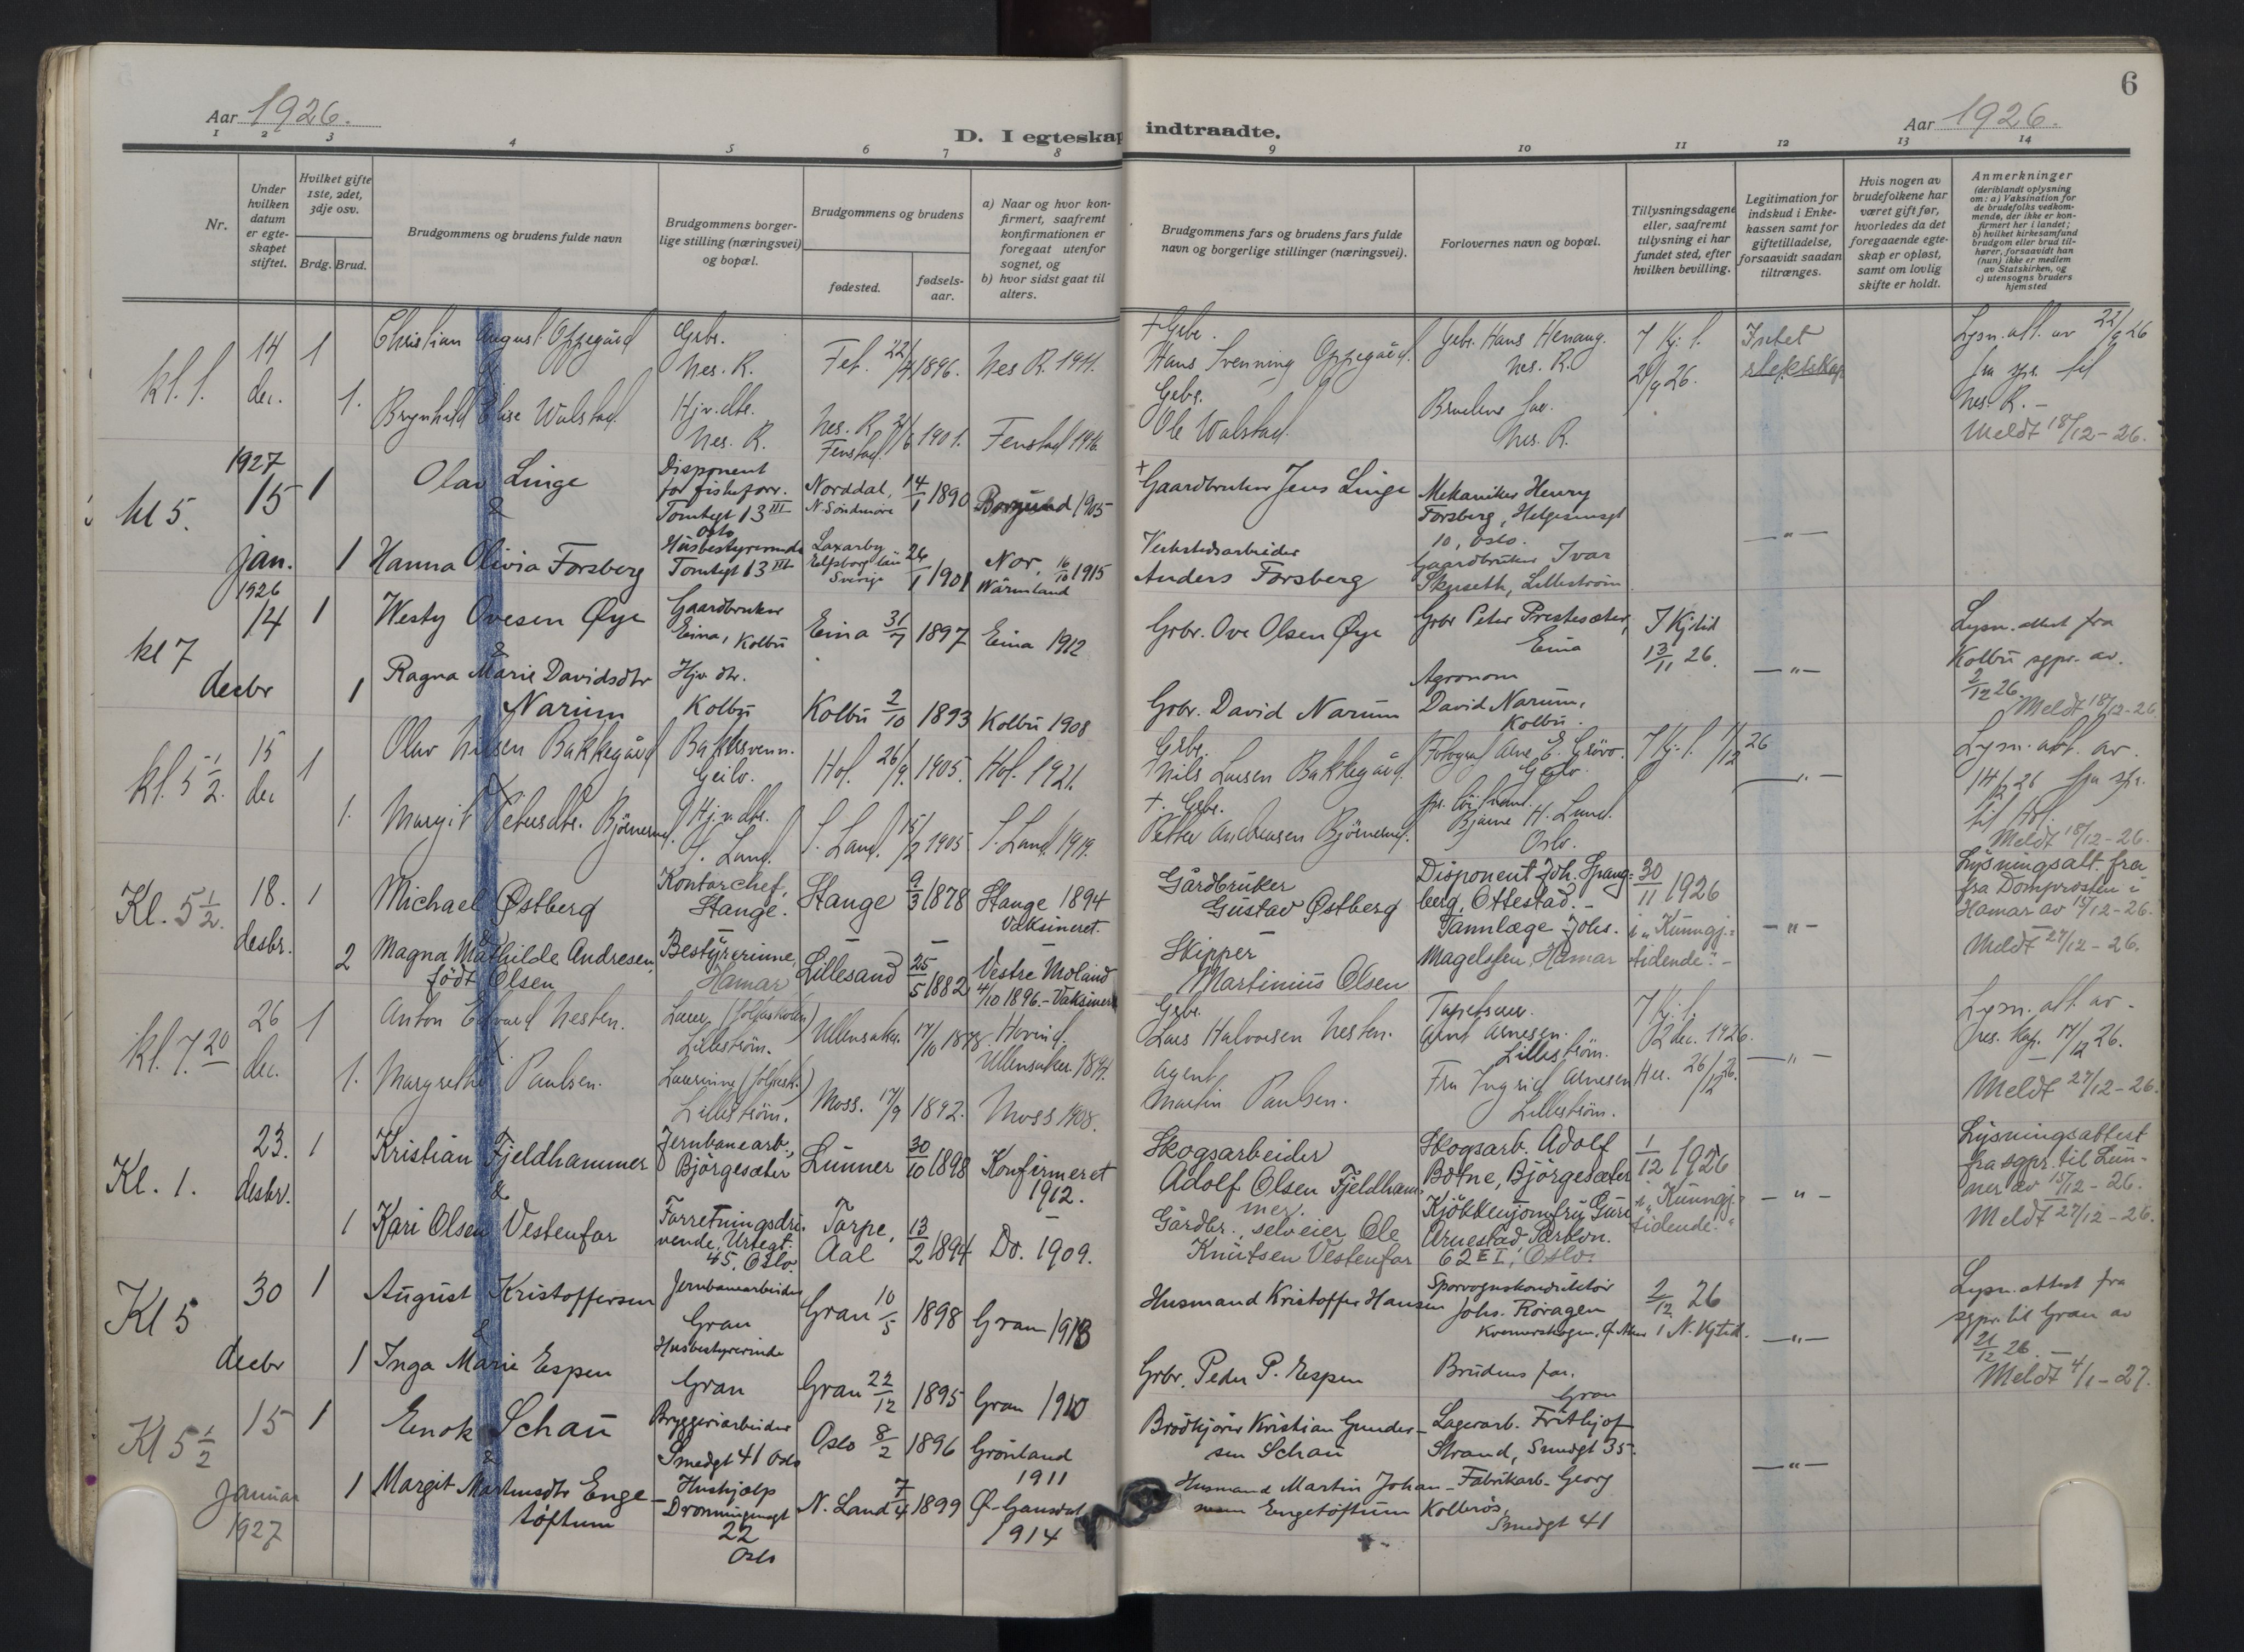 6
Aar 1926.
Aar 1926.
D. I egteskap indtraadte.
1 2 3 4 5 6 7 8 9 10 11 12 13 14
Nr.
Under hvilken datum er egteskapet stiftet.
Hvilket gifte 1ste, 2det, 3dje osv.
Brdg. Brud.
Brudgommens og brudens fulde navn
Brudgommens borgerlige stilling (næringsvei) og bopæl.
Brudgommens og brudens
fødested.
fødselsaar.
a) Naar og hvor konfirmert, saafremt konfirmationen er foregaat utenfor sognet, og
b) hvor sidst gaat til alters.
Brudgommens fars og brudens fars fulde navn og borgerlige stillinger (næringsvei).
Forlovernes navn og bopæl.
Tillysningsdagene eller, saafremt tillysning ei har fundet sted, efter hvilken bevilling.
Legitimation for indskud i Enkekassen samt for giftetilladelse, forsaavidt saadan tiltrænges.
Hvis nogen av brudefolkene har været gift før, hvorledes da det foregaaende egteskap er opløst, samt om lovlig skifte er holdt.
Anmerkninger
(deriblandt oplysning om: a) Vaksination for de brudefolks vedkommende, der ikke er konfirmert her i landet;
b) hvilket kirkesamfund brudgom eller brud tilhører, forsaavidt han (hun) ikke er medlem av Statskirken, og
c) utensogns bruders hjemsted
kl. 1. 14 dec. 1 Christian August Oppegård Grbr. Nes. R. Fet. 22/4 1896. Nes R. 1911. + Grbr. Hans Svenning Oppegård. Grbr. Hans Henaug. Nes. R. 26. Intet slektskap Lysn. att. av 22/9 26 fra spr. til Nes. R. -
1. Brynhild Elise Walstad. Hjv. dtr. Nes. R. Nes. R. Fenstad. 1901. Fenstad 1916. Grbr. Ole Walstad. Brudens far. Nes. R. Meldt 18/12-26.
kl 5. 1927 15 jan. 1 Olav Linge & Disponent for fiskeforr. Tomtegt 13 III Oslo Norddal, N. Søndmøre 14/1 1890 Borgund 1905 + Gaardbruker Jens Linge Mekaniker Henry Forsberg, Helgesensgt 10, Oslo.
1 Hanna Olivia Forsberg Husbestyrerinde Tomtegt 13 III Laxarby Elfsborg län Sverige 26/1 1901 Nor, Wärmland 16/10 1915 Verkstedsarbeider Anders Forsberg Gaardbruker Ivar Skjuseth, Lillestrøm - " -
kl 7 1926 14 decbr 1 Westy Ovesen Øye & Gaardbruker Eina, Kolbu Eina 31/7 1897 Eina 1912 Grbr. Ove Olsen Øye Grbr Peter Prestesæter, Eina 13/11 26. - " - Lysn. attest fra Kolbu sgpr. av. 2/12 26.
1 Ragna Marie Davidsdtr Narum Hjv. dtr. Kolbu Kolbu 2/10 1893 Kolbu 1908 Grbr. David Narum Agronom David Narum, Kolbu. Meldt 18/12-26
kl. 5 1/2. 15 dec 1 Olav Nilsen Bakkegård Bakersvenn. Geilo. Hol. 26/9. 1905. Hol. 1921. Grbr. Nils Larsen Bakkegård. Fotograf Arne E. Grövo. Geilo. 1/12 26 - " - Lysn. att. av. 14/12 26 fra spr. til Hol.
1. Margit Petersdtr. Björnerud. Hj. v. dtr. S. Land. S. Land. 15/2 1905 S. Land 1919. +. Grbr. Petter Andreasen Björnerud. Bjarne H. Lund. Oslo. Meldt 18/12-26.
Kl. 5 1/2. 18. desbr. 1 Michael Østberg & Kontorchef, Stange. Stange 9/3 1878 Stange 1894 Vaksineret. Gårdbruker Gustav Østberg Disponent Joh. Spangberg, Ottestad. - 30/11 1926 i "Kunngj. tidende". - - " - Lysningsatt. fra fra Domprosten i Hamar av 15/12-26.
2 Magna Mathilde Andresen, født Olsen Bestyrerinne, Hamar Lillesand 25/5 1882 Vestre Moland 4/10 1896. - Vaksineret Skipper Martinius Olsen Tannlæge Johs. Magelssen, Hamar Meldt 27/12-26.
kl. 7.20 26 dec. 1 Anton Edvard Nesten. Lærer (folkeskolen) Lillestrøm. Ullensaker. 17/10 1878 Hovind. Ullensaker. 1894. Grbr. Lars Halvorsen Nesten. Tapetserer. Arnt Arnesen. Lillestrøm. 12 dec. 1926. - " - Lysn. att. av res. kap. 17/12 26.
1. Margrethe Paulsen. Lærerinne (folkesk.) Lillestrøm. Moss. 17/9 1892. Moss 1908. Agent Martin Paulsen. Fru Ingrid Arnesen Lillestrøm. 26/12 26. Meldt 27/12-26.
Kl. 1. 23. desbr. 1 Kristian Fjeldhammer & Jernbanearb., Bjørgesæter Lunner 30/10 1898 Konfirmeret 1912. Skogsarbeider Adolf Olsen Fjeldhammer. Skogsarb. Adolf Botne, Bjørgesæter 1/12 1926 i "Kunngj. tidende". - " - Lysningsattest fra sgpr. til Lunner av 15/12-26.
1 Kari Olsen Vestenfor Forretningsdrivende, Urtegt. 45, Oslo. Torpe, Aal 13/2 1894 Do. 1909. Gårdbr., selveier Ole Knutsen Vestenfor Kjøkkenjomfru Guri Arnestad, 62 E I, Oslo. Meldt 27/12-26.
Kl 5 30 decbr 1 August Kristoffersen & Jernbanearbeider Gran Gran 10/5 1898 Gran 1913 Husmand Kristoffer Hansen Sporvognskonduktör Johs. Røragen Kvernerskogen, Ø. Aker 2/12 26 i N. Kgtid. - " - Lysn. attest fra sgpr. til Gran av 21/12 26. -
1 Inga Marie Espen Husbestyrerinde Gran Gran 22/12 1895 Gran 1910 Grbr. Peder P. Espen Brudens far. Gran Meldt 4/1-27.
Kl 5 1/2 15 Januar 1927 1 Enok Schau & Bryggeriarbeider Smedgt 41 Oslo Oslo 8/2 1896 Grønland 1911 Brødkjører Kristian Gundersen Schau Lagerarb. Frithjof Strand, Smedgt 35. - " -
1 Margit Martinsdtr Engetøftum Hushjælp Dronningensgt 22 Oslo N. Land 7/4 1899 Ø. Gausdal 1914 Husmand Martin Johansen Engetøftum Fabrikarb. Georg Kollerös, Smedgt 41